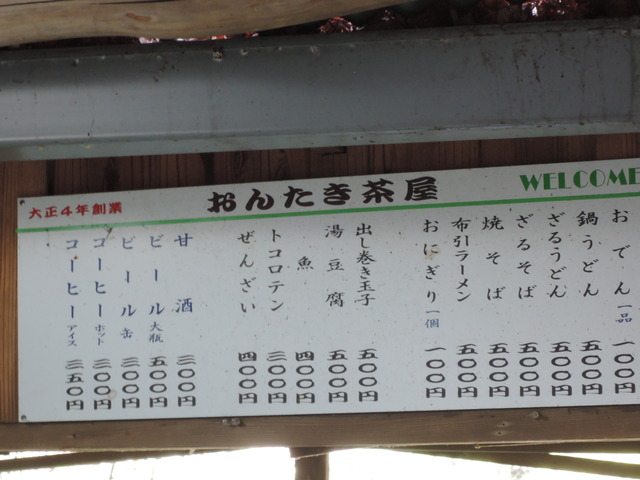 大正4年創業
おんたき茶屋
WELCOME
おでん 一品 一〇〇円
鍋うどん 五〇〇円
ざるうどん 五〇〇円
ざるそば 五〇〇円
焼そば 五〇〇円
布引ラーメン 五〇〇円
おにぎり 一個 一〇〇円
出し巻き玉子 五〇〇円
湯豆腐 五〇〇円
魚 四〇〇円
トコロテン 三〇〇円
ぜんざい 四〇〇円
甘酒 三〇〇円
ビール 大瓶 五〇〇円
ビール 缶 三〇〇円
コーヒー ホット 三〇〇円
コーヒー アイス 三五〇円